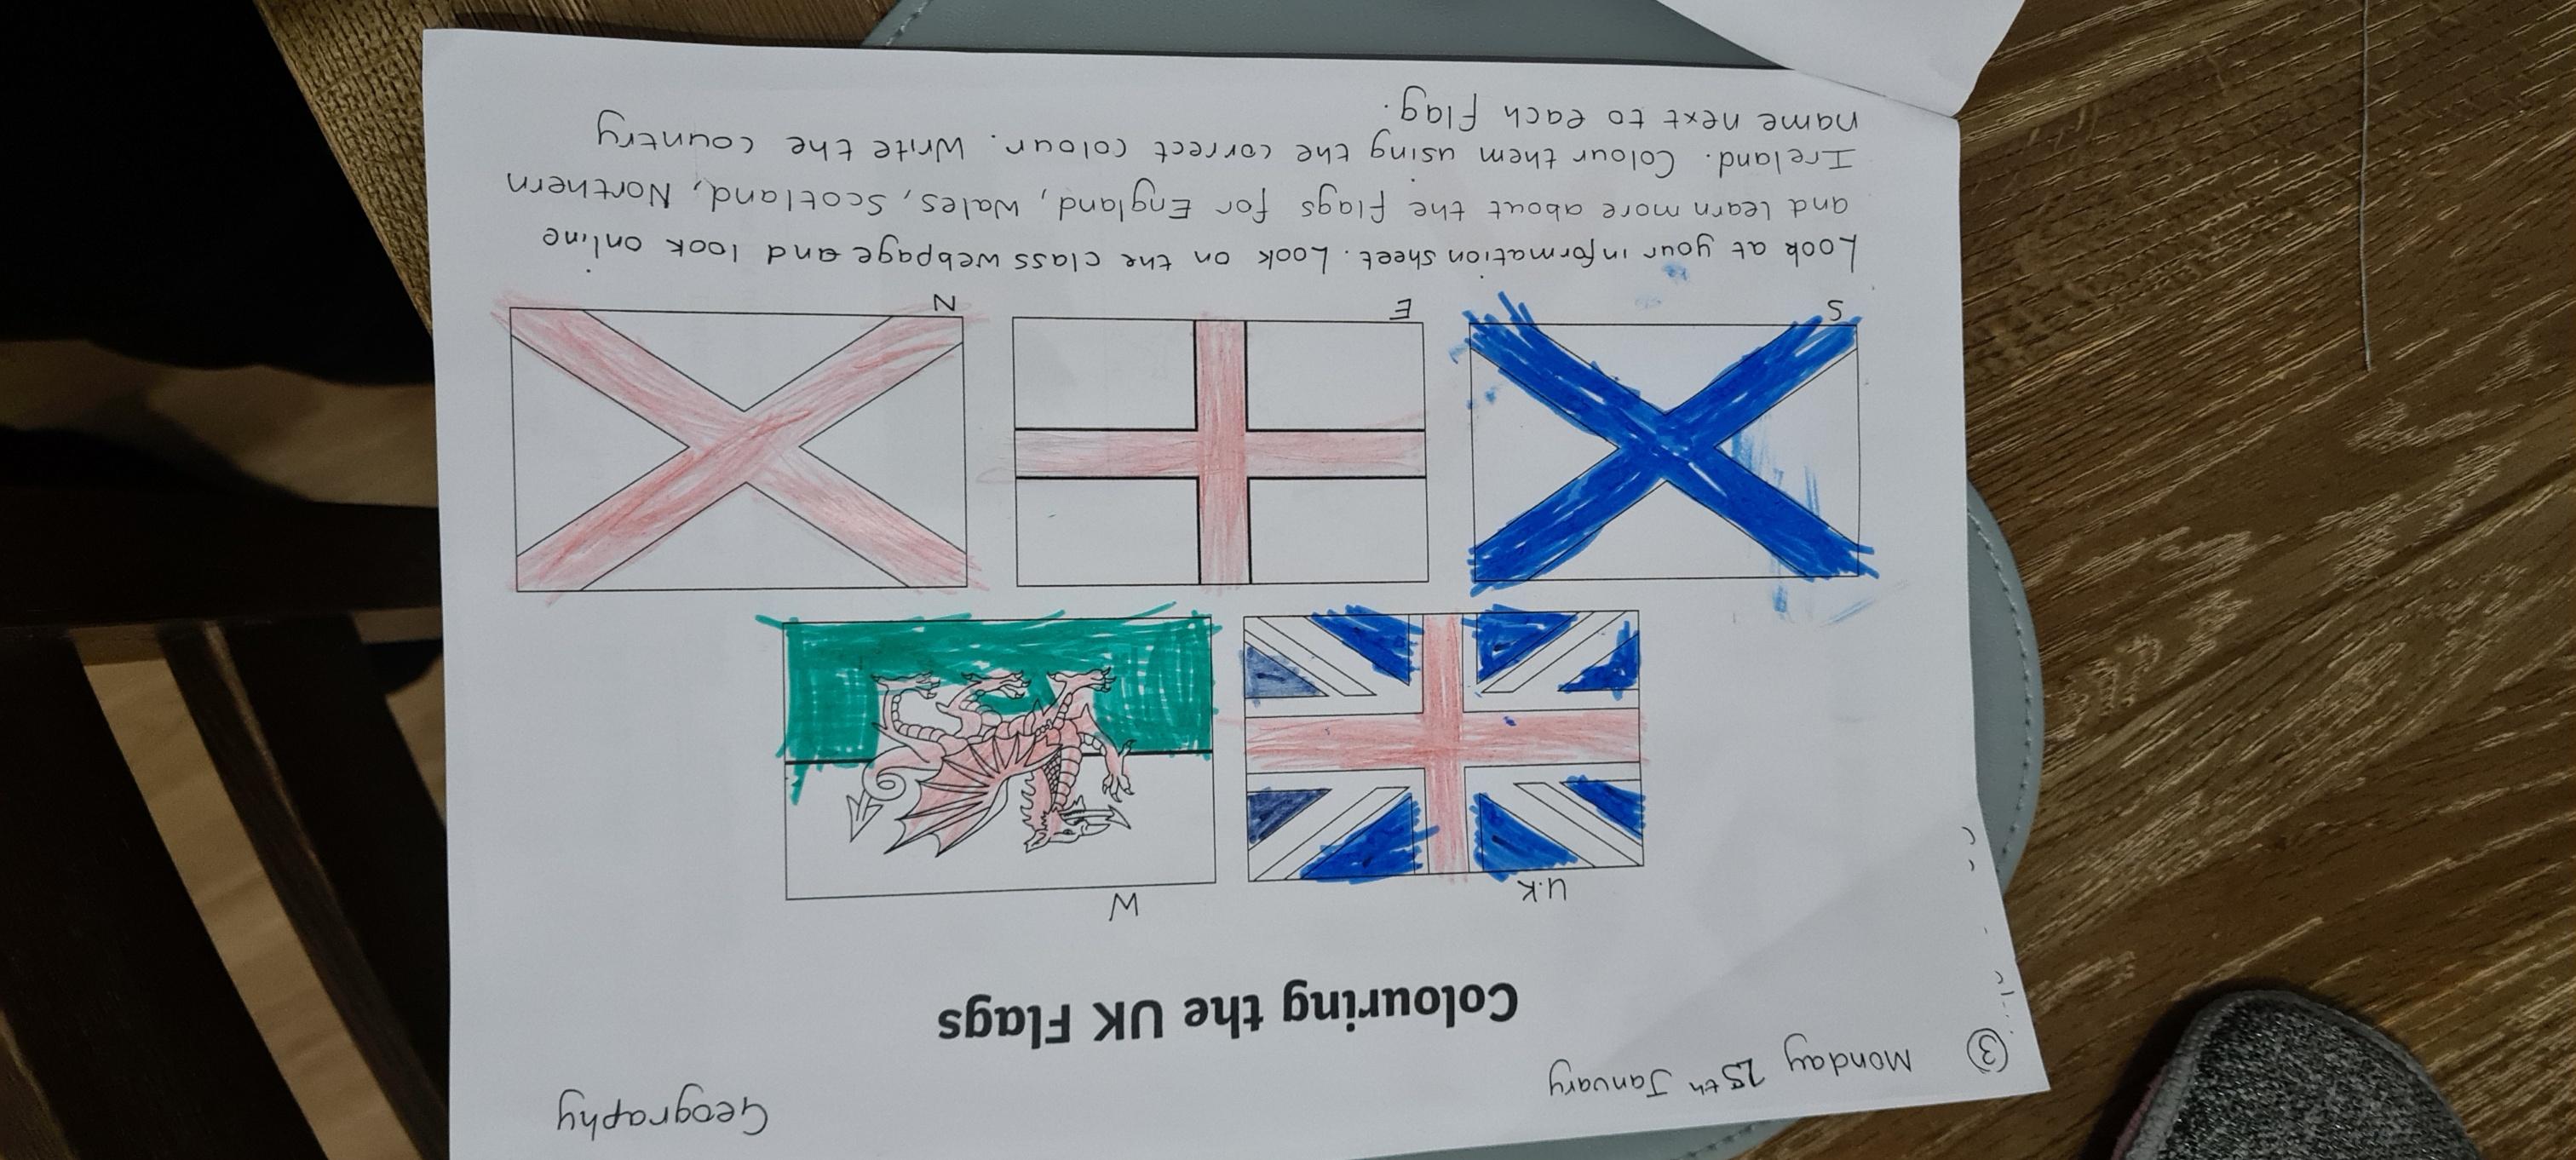 ③ Monday 25th January
Geography
Colouring the UK Flags
U.K
W
S
E
N
Look at your information sheet. Look on the class webpage and look online
and learn more about the flags for England, Wales, Scotland, Northern
Ireland. Colour them using the correct colour. Write the country
name next to each flag.